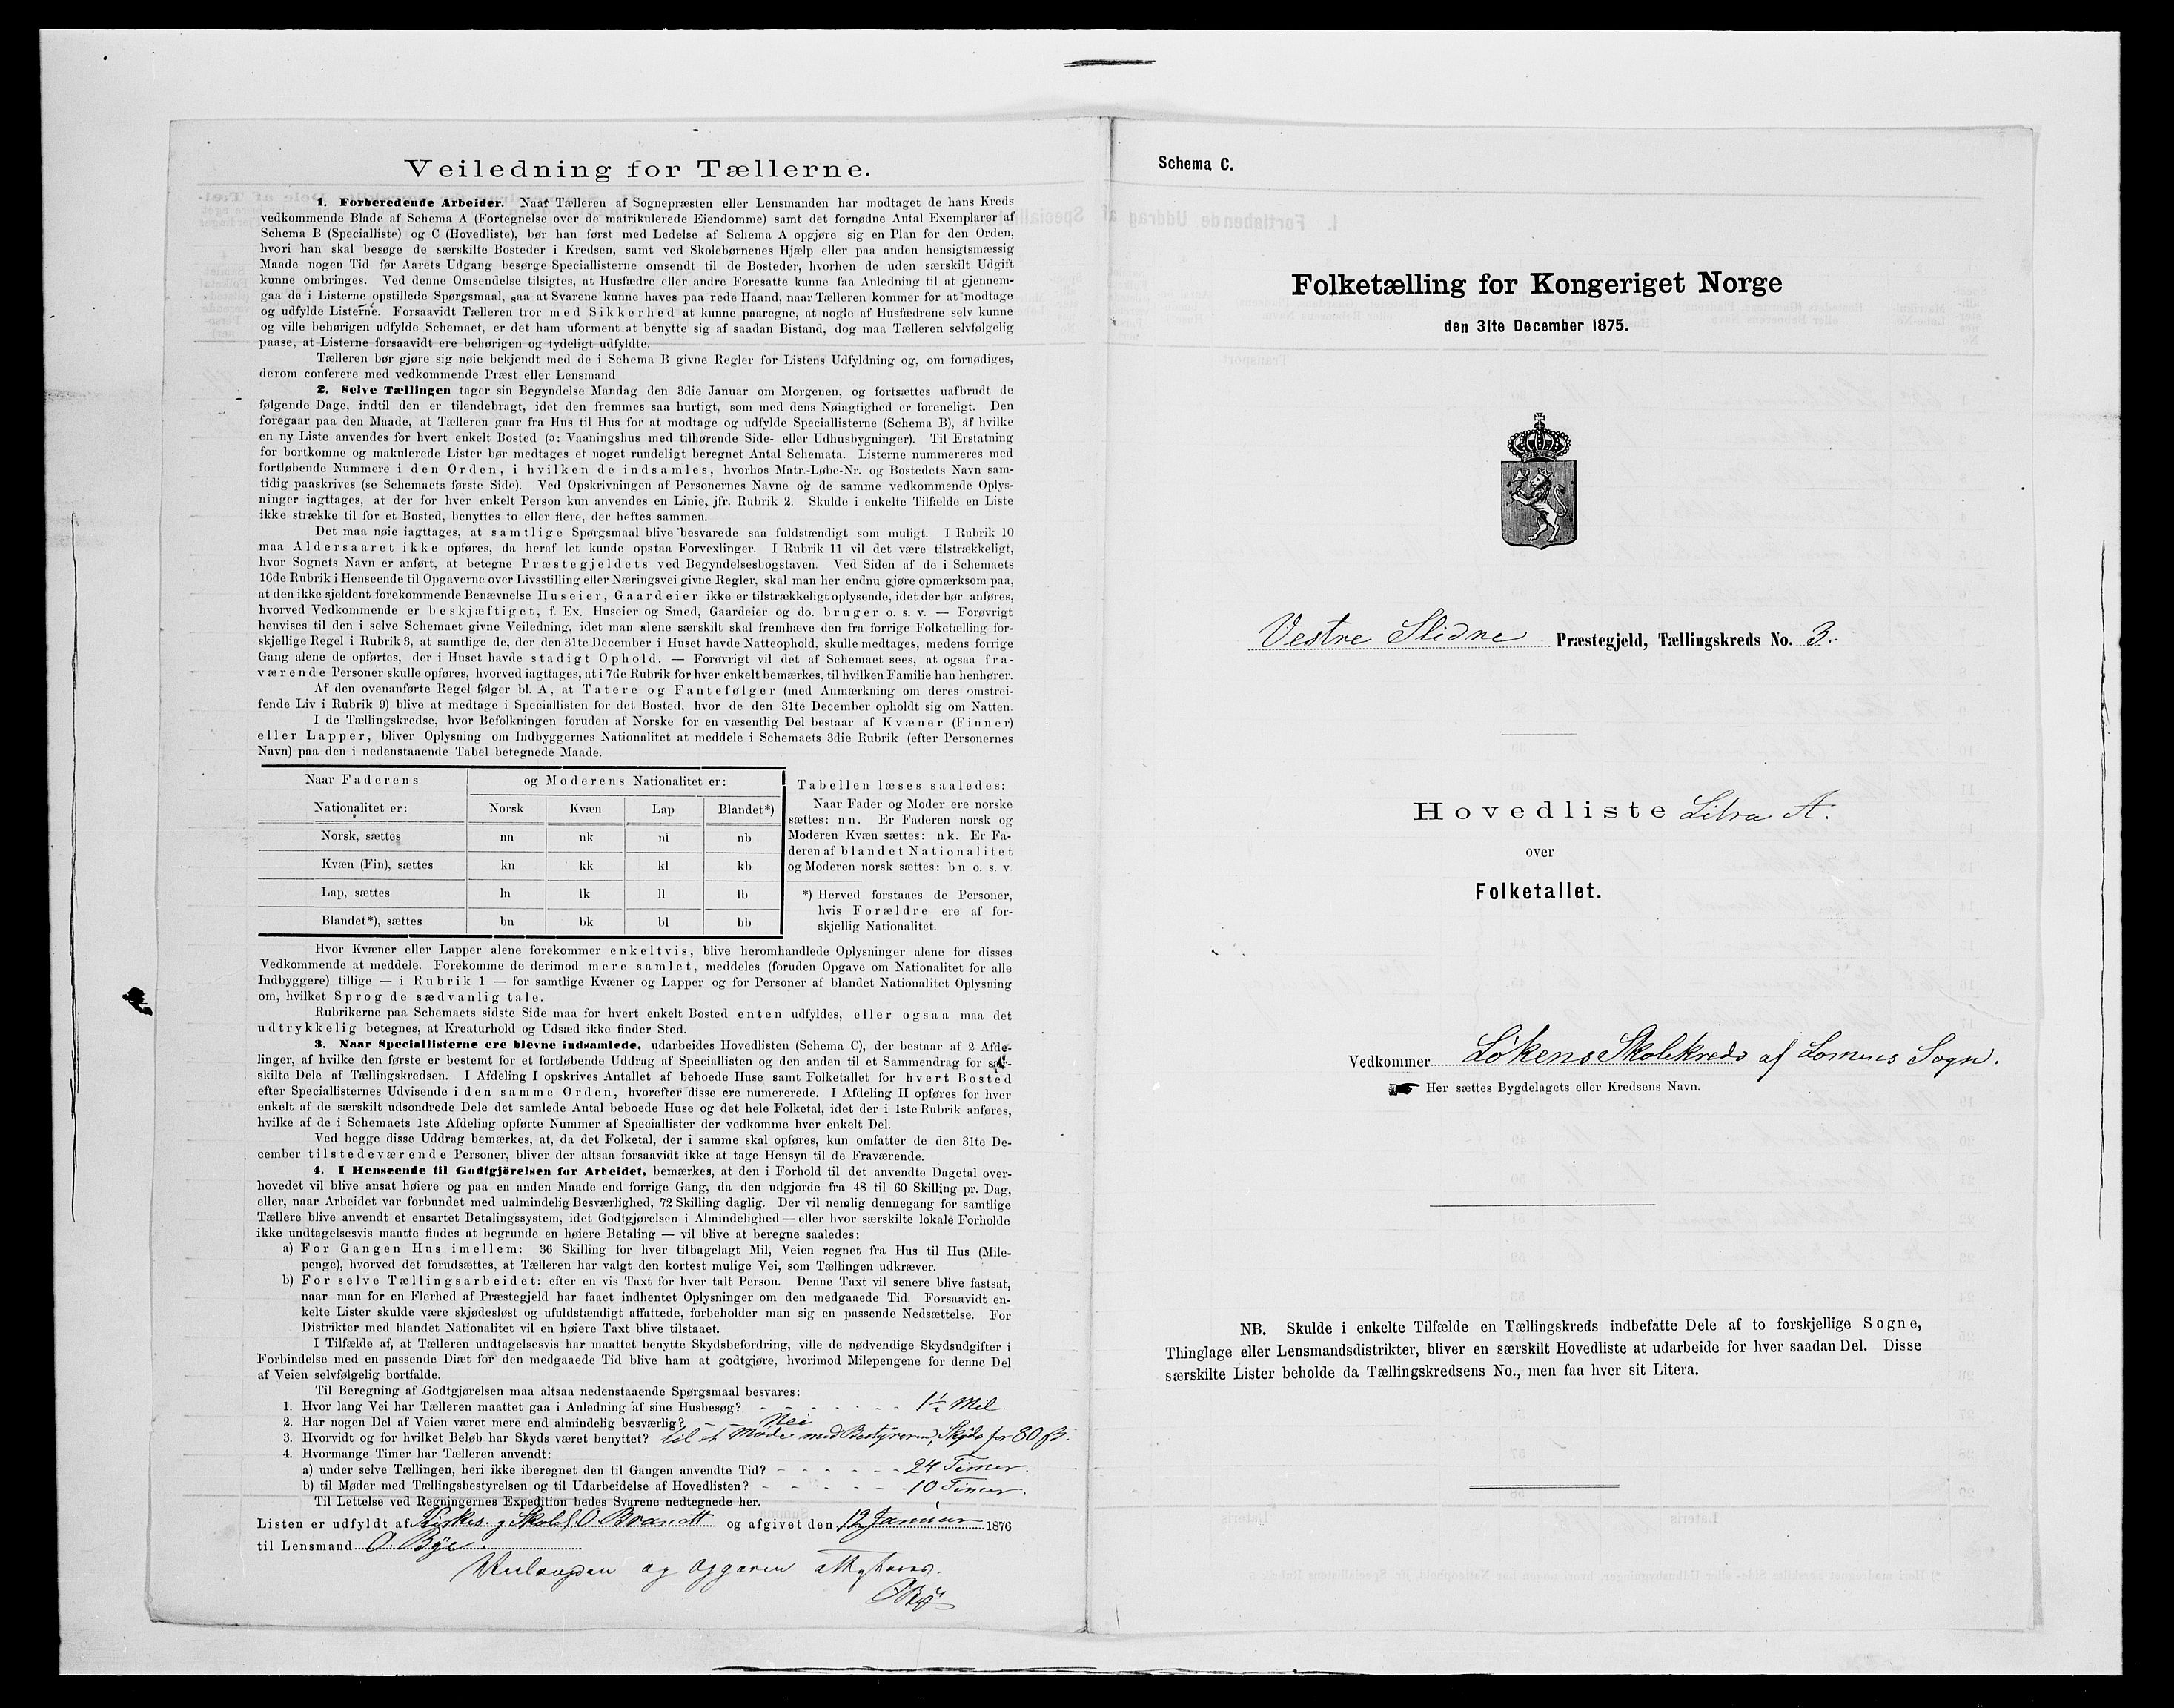 Veiledning for Tællerne.
1. Forberedende Arbeider. Naar Tælleren af Sognepræsten eller Lensmanden har modtaget de hans Kreds
vedkommende Blade af Schema A (Fortegnelse over de matrikulerede Eiendomme) samt det fornødne Antal Exemplarer af
Schema B (Specialliste) og C (Hovedliste), bør han først med Ledelse af Schema A opgjøre sig en Plan for den Orden,
hvori han skal besøge de særskilte Bosteder i Kredsen, samt ved Skolebørnenes Hjælp eller paa anden hensigtsmæssig
Maade nogen Tid før Aarets Udgang besørge Speciallisterne omsendt til de Bosteder, hvorhen de uden særskilt Udgift
kunne ombringes. Ved denne Omsendelse tilsigtes, at Husfædre eller andre Foresatte kunne faa Anledning til at gjennem-
gaa de i Listerne opstillede Spørgsmaal, saa at Svarene kunne haves paa rede Haand, naar Tælleren kommer for at modtage
og udfylde Listerne. Forsaavidt Tælleren tror med Sikkerhed at kunne paaregne, at nogle af Husfædrene selv kunne
og ville behørigen udfylde Schemaet, er det ham uforment at benytte sig af saadan Bistand, dog maa Tælleren selvfølgelig
paase, at Listerne forsaavidt ere behørigen og tydeligt udfyldte.
Tælleren bør gjøre sig nøie bekjendt med de i Schema B givne Regler for Listens Udfyldning og, om fornødiges,
derom conferere med vedkommende Præst eller Lensmand
2. Selve Tællingen tager sin Begyndelse Mandag den 3die Januar om Morgenen, og fortsættes uafbrudt de
følgende Dage, indtil den er tilendebragt, idet den fremmes saa hurtigt, som med dens Nøiagtighed er foreneligt. Den
foregaar paa den Maade, at Tælleren gaar fra Hus til Hus for at modtage og udfylde Speciallisterne (Schema B), af hvilke
en ny Liste anvendes for hvert enkelt Bosted (ɔ: Vaaningshus med tilhørende Side- eller Udhusbygninger). Til Erstatning
for bortkomne og makulerede Lister bør medtages et noget rundeligt beregnet Antal Schemata. Listerne nummereres med
fortløbende Nummere i den Orden, i hvilken de indsamles, hvorhos Matr.-Løbe-Nr. og Bostedets Navn sam-
tidig paaskrives (se Schemaets første Side). Ved Opskrivningen af Personernes Navne og de samme vedkommende Oplys-
ninger iagttages, at der for hver enkelt Person kun anvendes en Linie, jfr. Rubrik 2. Skulde i enkelte Tilfælde en Liste
ikke strække til for et Bosted, benyttes to eller flere, der heftes sammen.
Det maa nøie iagttages, at samtlige Spørgsmaal blive besvarede saa fuldstændigt som muligt. I Rubrik 10
maa Aldersaaret ikke opføres, da heraf let kunde opstaa Forvexlinger. I Rubrik 11 vil det være tilstrækkeligt,
hvor Sognets Navn er anført, at betegne Præstegjeldets ved Begyndelsesbogstaven. Ved Siden af de i Schemaets
16de Rubrik i Henseende til Opgaverne over Livsstilling eller Næringsvei givne Regler, skal man her endnu gjøre opmærksom paa,
at den ikke sjeldent forekommende Benævnelse Huseier, Gaardeier ikke er tilstrækkeligt oplysende, idet der bør anføres,
hvorved Vedkommende er beskjæftiget, f. Ex. Huseier og Smed, Gaardeier og do. bruger o. s. v. — Forøvrigt
henvises til den i selve Schemaet givne Veiledning, idet man alene særskilt skal fremhæve den fra forrige Folketælling for-
skjellige Regel i Rubrik 3, at samtlige de, der den 31te December i Huset havde Natteophold, skulle medtages, medens forrige
Gang alene de opførtes, der i Huset havde stadigt Ophold. — Forøvrigt vil det af Schemaet sees, at ogsaa fra-
værende Personer skulle opføres, hvorved iagttages, at i 7de Rubrik for hver enkelt bemærkes, til hvilken Familie han henhører.
Af den ovenanførte Regel følger bl. A, at Tatere og Fantefølger (med Anmærkning om deres omstrei-
fende Liv i Rubrik 9) blive at medtage i Speciallisten for det Bosted, hvor de den 31te December opholdt sig om Natten.
I de Tællingskredse, hvor Befolkningen foruden af Norske for en væsentlig Del bestaar af Kvæner (Finner)
eller Lapper, bliver Oplysning om Indbyggernes Nationalitet at meddele i Schemaets 3die Rubrik (efter Personernes
Navn) paa den i nedenstaaende Tabel betegnede Maade.
Naar Faderens og Moderens Nationalitet er:
Nationalitet er: Norsk Kvæn Lap Blandet*)
Norsk, sættes nn nk nl nb
Kvæn (Fin), sættes kn kk kl kb
Lap, sættes ln lk ll lb
Blandet*), sættes bn bk bl bb
Tabellen læses saaledes:
Naar Fader og Moder ere norske
sættes: nn. Er Faderen norsk og
Moderen Kvæn sættes: nk. Er Fa-
deren af blandet Nationalitet
og Moderen norsk sættes: bn o. s. v.
*) Herved forstaaes de Personer,
hvis Forældre ere af for-
skjellig Nationalitet.
Hvor Kvæner eller Lapper alene forekommer enkeltvis, blive heromhandlede Oplysninger alene for disses
Vedkommende at meddele. Forekomme de derimod mere samlet, meddeles (foruden Opgave om Nationalitet for alle
Indbyggere) tillige — i Rubrik 1 — for samtlige Kvæner og Lapper og for Personer af blandet Nationalitet Oplysning
om, hvilket Sprog de sædvanlig tale.
Rubrikerne paa Schemaets sidste Side maa for hvert enkelt Bosted enten udfyldes, eller ogsaa maa det
udtrykkelig betegnes, at Kreaturhold og Udsæd ikke finder Sted.
3. Naar Speciallisterne ere blevne indsamlede, udarbeides Hovedlisten (Schema C), der bestaar af 2 Afde-
linger, af hvilke den første er bestemt for et fortløbende Uddrag af Speciallisten og den anden til et Sammendrag for sær-
skilte Dele af Tællingskredsen. I Afdeling I opskrives Antallet af beboede Huse samt Folketallet for hvert Bosted
efter Speciallisternes Udvisende i den samme Orden, hvorefter disse ere numererede. I Afdeling II opføres for hver
enkelt af de særskilt udsondrede Dele det samlede Antal beboede Huse og det hele Folketal, idet der i 1ste Rubrik anføres,
hvilke af de i Schemaets 1ste Afdeling opførte Nummer af Speciallister der vedkomme hver enkelt Del.
Ved begge disse Uddrag bemærkes, at, da det Folketal, der i samme skal opføres, kun omfatter de den 31te De-
cember tilstedeværende Personer, bliver der altsaa forsaavidt ikke at tage Hensyn til de Fraværende.
4. I Henseende til Godtgjörelsen for Arbeidet, bemærkes, at den i Forhold til det anvendte Dagetal over-
hovedet vil blive ansat høiere og paa en anden Maade end forrige Gang, da den udgjorde fra 48 til 60 Skilling pr. Dag,
eller, naar Arbeidet var forbundet med ualmindelig Besværlighed, 72 Skilling daglig. Der vil nemlig dennegang for samtlige
Tællere blive anvendt et ensartet Betalingssystem, idet Godtgjørelsen i Almindelighed — eller hvor særskilte lokale Forholde
ikke undtagelsesvis maatte findes at begrunde en høiere Betaling — vil blive at beregne saaledes:
a) For Gangen Hus imellem: 36 Skilling for hver tilbagelagt Mil, Veien regnet fra Hus til Hus (Mile-
penge), hvorved det forudsættes, at Tælleren har valgt den kortest mulige Vei, som Tællingen udkræver.
b) For selve Tællingsarbeidet: efter en vis Taxt for hver talt Person. Denne Taxt vil senere blive fastsat,
naar man for en Flerhed af Præstegjeld har faaet indhentet Oplysninger om den medgaaede Tid. Forsaavidt en-
kelte Lister skulde være skjødesløst og ufuldstændigt affattede, forbeholder man sig en passende Nedsættelse. For
Distrikter med blandet Nationalitet vil en høiere Taxt blive tilstaaet.
I Tilfælde af, at Tælleren undtagelsesvis har maattet benytte Skydsbefordring, ville de nødvendige Skydsudgifter i
Forbindelse med en passende Diæt for den medgaaede Tid blive ham at godtgjøre, hvorimod Milepengene for denne Del
af Veien selvfølgelig bortfalde.
Til Beregning af Godtgjørelsen maa altsaa nedenstaaende Spørgsmaal besvares:
1. Hvor lang Vei har Tælleren maattet gaa i Anledning af sine Husbesøg? 1½ Mil.
2. Har nogen Del af Veien været mere end almindelig besværlig? Nei
3. Hvorvidt og for hvilket Beløb har Skyds været benyttet? til et Møde med Bestyreren, Skyds for 80 ß.
4. Hvormange Timer har Tælleren anvendt:
a) under selve Tællingen, heri ikke iberegnet den til Gangen anvendte Tid? 24 Timer.
b) til Møder med Tællingsbestyrelsen og til Udarbeidelse af Hovedlisten? 10 Timer.
Til Lettelse ved Regningernes Expedition bedes Svarene nedtegnede her.
Listen er udfyldt af Kirkes. og Skolel. O. Brandt og afgivet den 12 Januar 1876
til Lensmand O. Bye.
og
Schema C.
Folketælling for Kongeriget Norge
den 31te December 1875.
Vestre Slidre Præstegjeld, Tællingskreds No. 3.
Hovedliste Litra A.
over
Folketallet.
Vedkommer Løkens Skolekreds af Lomens Sogn.
Her sættes Bygdelagets eller Kredsens Navn.
NB. Skulde i enkelte Tilfælde en Tællingskreds indbefatte Dele af to forskjellige Sogne,
Thinglage eller Lensmandsdistrikter, bliver en særskilt Hovedliste at udarbeide for hver saadan Del. Disse
særskilte Lister beholde da Tællingskredsens No., men faa hver sit Litera.